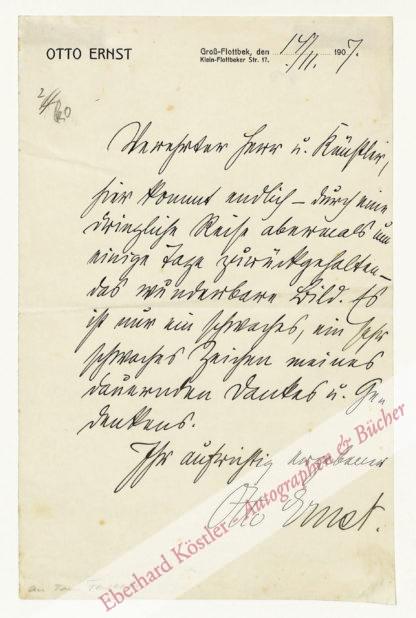 OTTO ERNST
Groß-Flottbek, den 14./11. 1907.
Klein-Flottbeker Str. 17.
Verehrter Herr u. Künstler,
hier kommt endlich – durch eine
dringliche Reise abermals um
einige Tage zurückgehalten –
das wunderbare Bild. Es
ist nur ein schwaches, ein sehr
schwaches Zeichen meines
dauernden Dankes u. Ge-
denkens.
Ihr aufrichtig ergebener
Otto Ernst.
Eberhard Köstler Autographen & Bücher